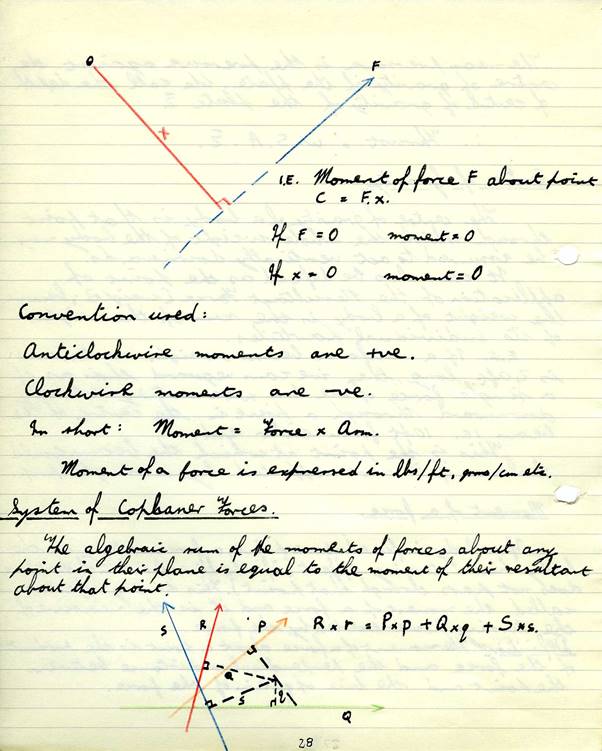 O
F
x
I.E. Moment of force F about point
C = F.x.
If F = 0 moment = 0
If x = 0 moment = 0
Convention used:
Anticlockwise moments are +ve.
Clockwise moments are -ve.
In short: Moment = Force x Arm.
Moment of a force is expressed in lbs/ft, grms/cm etc.
System of Coplaner Forces.
The algebraic sum of the moments of forces about any
point in their plane is equal to the moment of their resultant
about that point.
S R P R x r = P x p + Q x q + S x s.
s q
Q
28